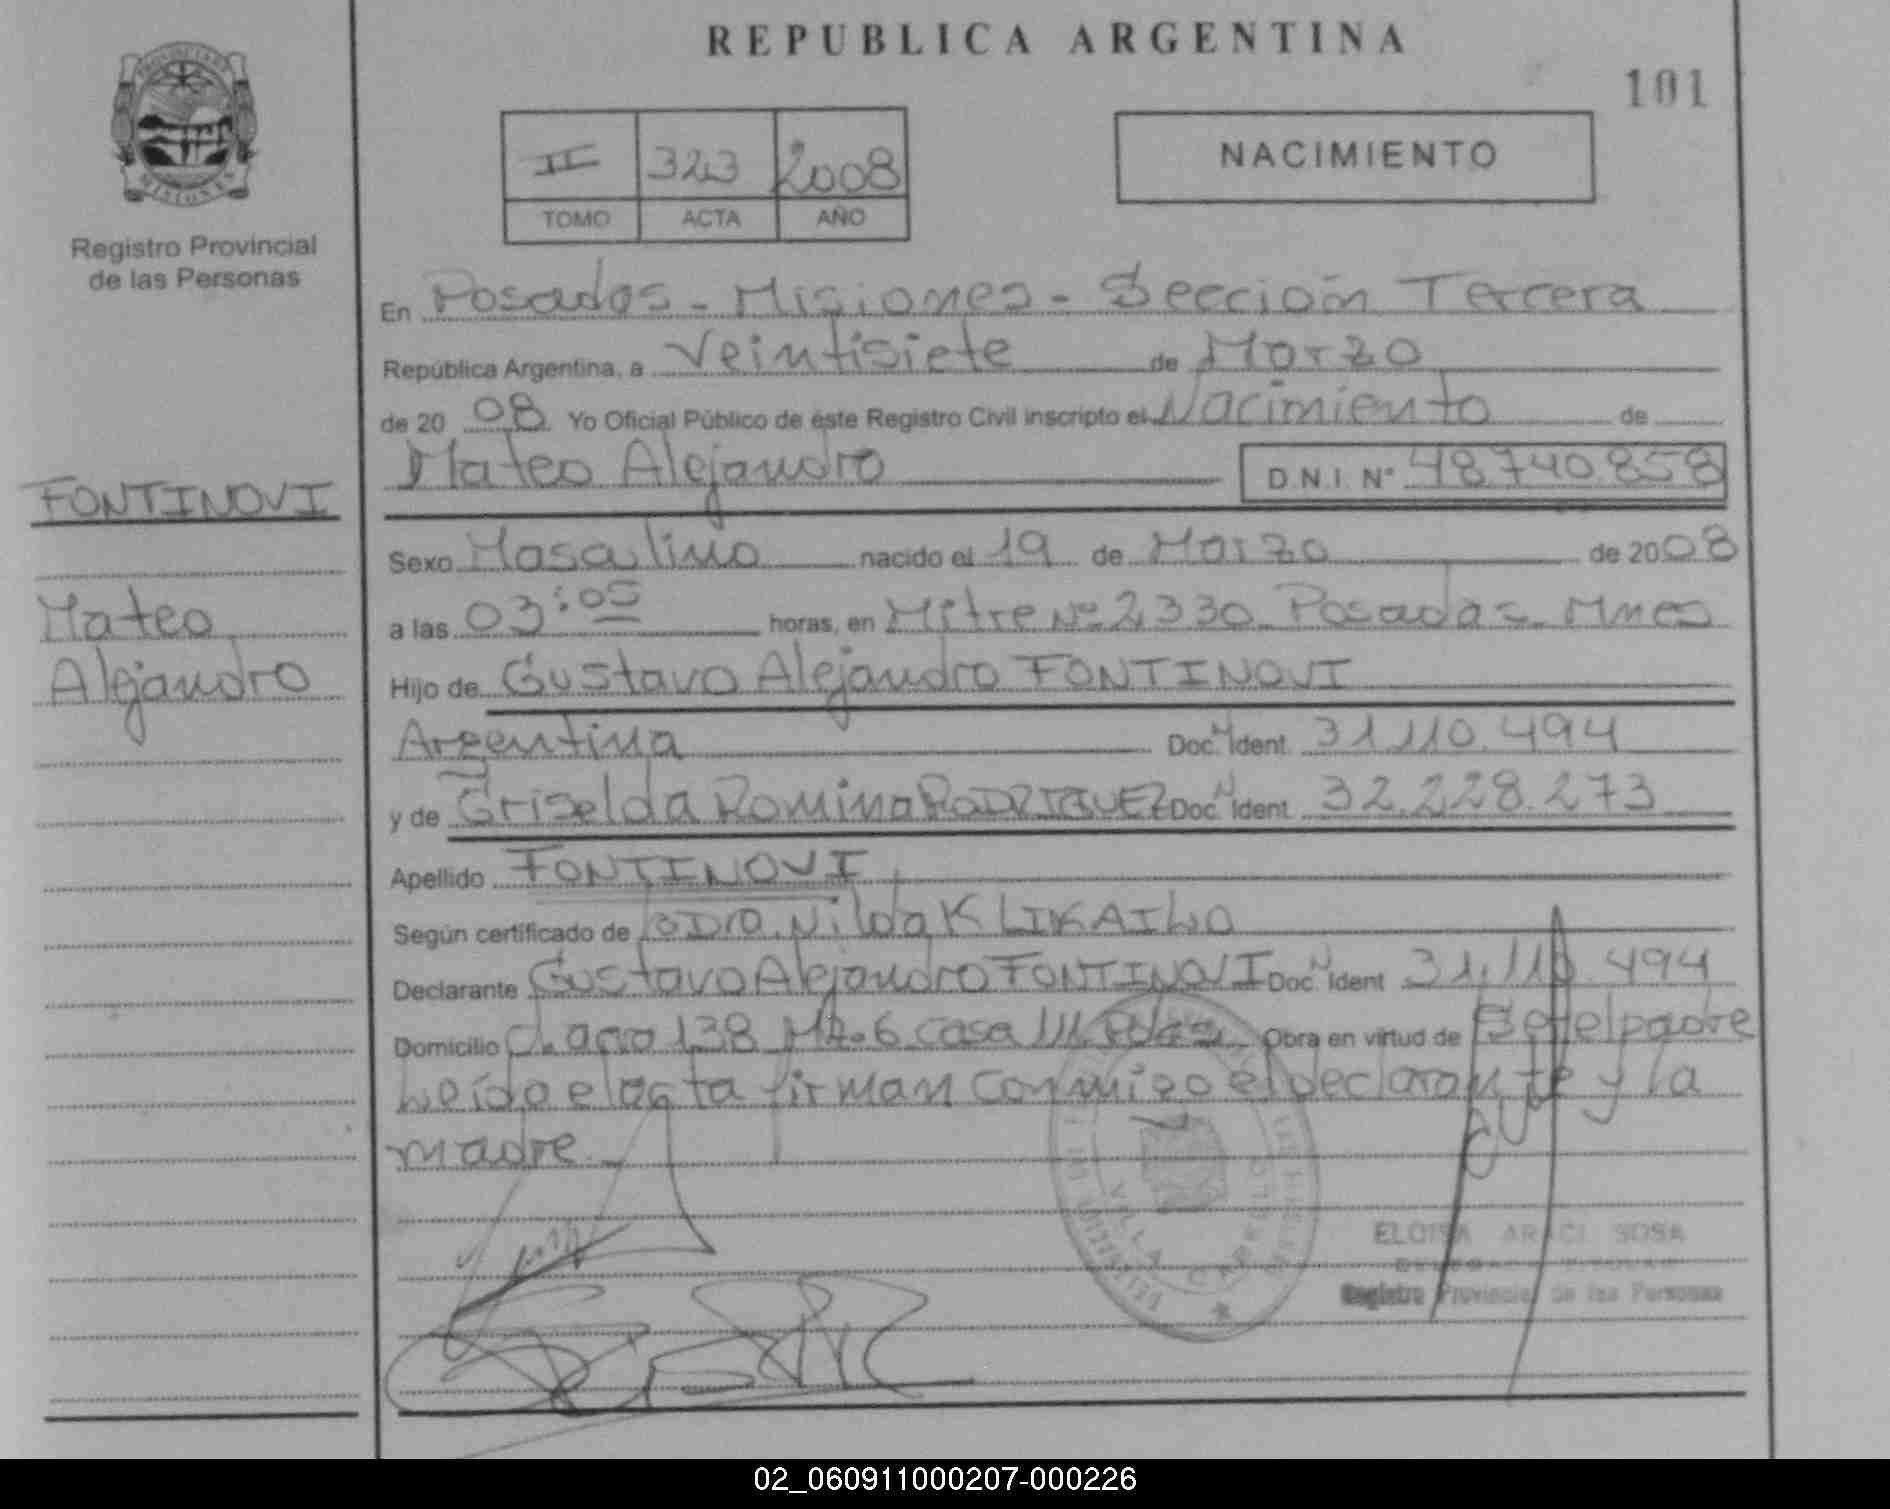 REPUBLICA ARGENTINA
101
PROVINCIA DE MISIONES
Registro Provincial
de las Personas
II 323 2008
TOMO ACTA AÑO
NACIMIENTO
En Posadas - Misiones - Sección Tercera
República Argentina, a Veintisiete de Marzo
de 20 08 Yo Oficial Público de este Registro Civil inscripto el Nacimiento de
Mateo Alejandro D.N.I. Nº 48.740.858
FONTINOVI
Mateo
Alejandro
Sexo Masculino nacido el 19 de Marzo de 2008
a las 03:05 horas, en Mitre Nº 2330 Posadas - Mnes
Hijo de Gustavo Alejandro FONTINOVI
Argentina Doc. Ident. 31.110.494
y de Griselda Romina RODRIGUEZ Doc. Ident. 32.228.273
Apellido FONTINOVI
Según certificado de Nilda K LIKAIWO
Declarante Gustavo Alejandro FONTINOVI Doc. Ident 31.110.494
Domicilio Chacra 138 Mz. 6 casa Pdas Obra en virtud de Ser el padre
Leída el acta firman conmigo el declarante y la
madre.
VILLA CABELLO
ELOISA ARACI SOSA
Registro Provincial de las Personas
02_060911000207-000226